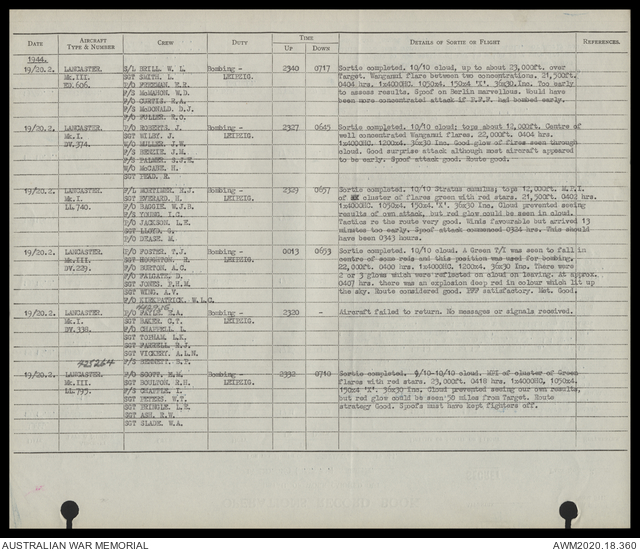 DATE AIRCRAFT TYPE & NUMBER CREW DUTY TIME UP DOWN DETAILS OF SORTIE OR FLIGHT REFERENCES.
1944.
19/20.2. LANCASTER. W. L. Bombing - 2340 0717 Sortie completed. 10/10 cloud, up to about 23,000ft. over
Mk.III. SGT SMITH, L. LEIPZIG. Target. Wanganui flare between two concentrations. 21,500ft.
ED.606. F/O FREEMAN, E.R. 0404 hrs. 1x4000HC. 1050x4. 150x4 'X'. 36x30.Inc. Too early
F/S McMAHON, W.D. to assess results. Spoof on Berlin marvellous. Would have
F/O CURTIS, R.A. been more concentrated attack if P.F.F. had bombed early.
F/S McDONALD, D.J.
F/O FULLER, R.C.
19/20.2. LANCASTER. F/O ROBERTS, J. Bombing - 2327 0645 Sortie completed. 10/10 cloud; tops about 12,000ft. Centre of
Mk.I. SGT WILBY, J. LEIPZIG. well concentrated Wanganui flares. 22,000ft. 0404 hrs.
DV.374. W/O MULLER, J.W. 1x4000HC. 1050x4. 150x4. 'X'. 36x30 Inc. Good glow of fires seen through
F/S J.M. cloud. Good surprise attack although most aircraft appeared
F/S PALMER, S.J.W. to be early. Spoof attack good. Route good.
W/O McCANN, H.
SGT PEAD, R.
19/20.2. LANCASTER. F/L MORTIMER, R.J. Bombing - 2329 0657 Sortie completed. 10/10 Stratus cumulus; tops 12,000ft. M.P.I.
Mk.I. SGT EVERARD, H. LEIPZIG. of cluster of flares green with red stars. 21,500ft. 0402 hrs.
LL.740. F/O BAGGIE, W.J.B. 1x4000HC. 1050x4. 150x4. 'X'. 36x30 Inc. Cloud prevented seeing
F/S YOUNG, I.C. results of own attack, but red glow could be seen in cloud.
F/O JACKSON, L.E. Tactics re the route very good. Winds favourable but arrived 13
SGT LLOYD, G. minutes too early. Spoof attack commenced 0324 hrs. This should
F/O DEASE, M. have been 0343 hours.
19/20.2. LANCASTER. F/O FOSTER, T.J. Bombing - 0013 0653 Sortie completed. 10/10 cloud. A Green T/I was seen to fall in
Mk.III. SGT HOUGHTON, G. LEIPZIG. centre of some reds and this position was used for bombing.
DV.229. F/O BURTON, A.C. 22,000ft. 0400 hrs. 1x4000HC. 1200x4. 36x30 Inc. There were
F/O FALGATE, D. 2 or 3 glows which were reflected on cloud on leaving. At approx.
SGT JONES, F.H.M. 0407 hrs. there was an explosion deep red in colour which lit up
SGT WING, A.V. the sky. Route considered good. PFF satisfactory. Met. Good.
F/O KIRKPATRICK, W.L.C.
19/20.2. LANCASTER. F/O FAYLE, E.A. Bombing - 2320 - Aircraft failed to return. No messages or signals received.
Mk.I. SGT BAKER, C.T. LEIPZIG.
DV.338. F/O CHARNELL, L.
SGT TOPHAM, L.K.
SGT FARRELL, R.J.
SGT VICKERY, A.L.N.
425264 F/S BENNETT, S.T.
19/20.2. LANCASTER. P/O SCOTT, E.M. Bombing - 2332 0710 Sortie completed. 9/10-10/10 cloud. MPI of cluster of Green
Mk.III. SGT BOULTON, R.H. LEIPZIG. flares with red stars. 23,000ft. 0418 hrs. 1x4000HC, 1050x4.
LL.795. F/S CHAPPLE, I. 150x4 'X'. 36x30 Inc. Cloud prevented seeing our own results,
SGT PETERS, W.T. but red glow could be seen 50 miles from Target. Route
SGT PRINGLE, L.E. strategy Good. Spoofs must have kept fighters off.
SGT E.W.
SGT SLADE, W.A.
AUSTRALIAN WAR MEMORIAL AWM2020.18.360